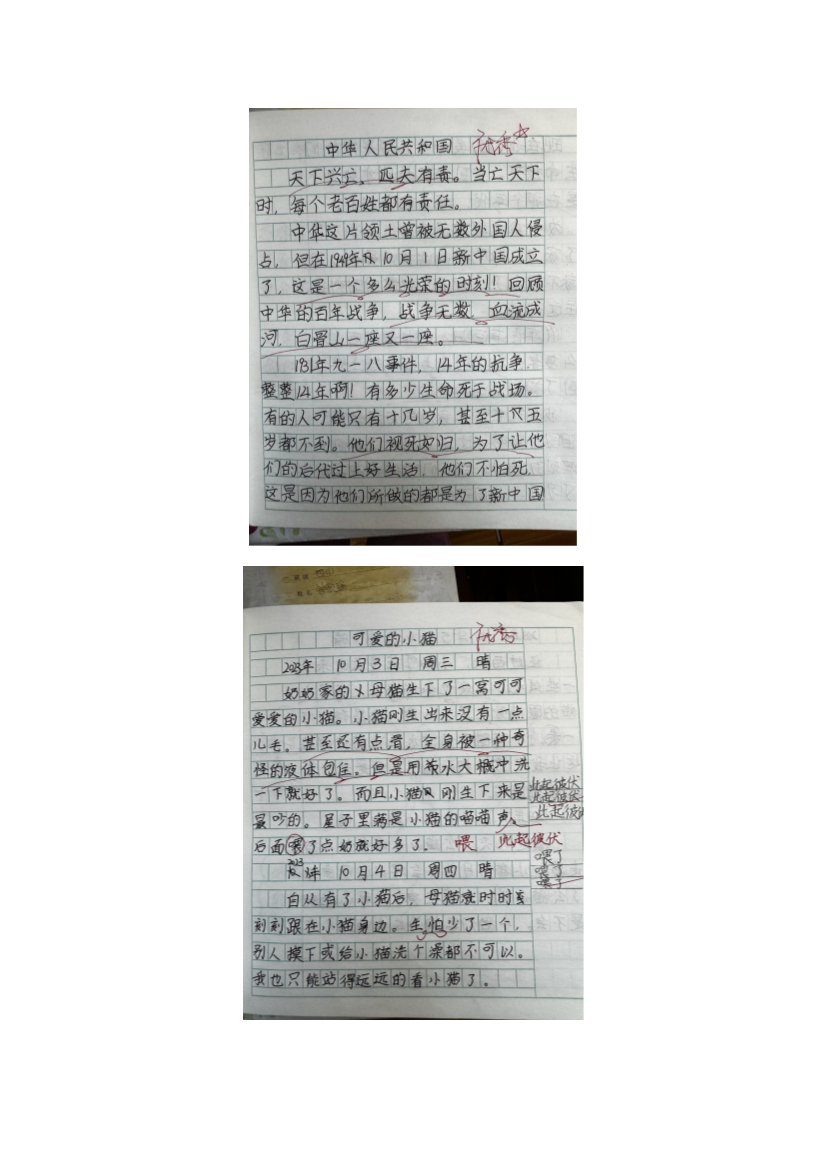 中华人民共和国 优秀
天下兴亡，匹夫有责。当亡天下
时，每个老百姓都有责任。
中华这片领土曾被无数外国人侵
占，但在1949年10月1日新中国成立
了，这是一个多么光荣的时刻！回顾
中华的百年战争，战争无数，血流成
河，白骨山一座又一座。
1931年九一八事件，14年的抗争，
整整14年啊！有多少生命死于战场。
有的人可能只有十几岁，甚至十五
岁都不到。他们视死如归，为了让他
们的后代过上好生活，他们不怕死，
这是因为他们所做的都是为了新中国
可爱的小猫 优秀
2023年 10月3日 周三 晴
奶奶家的母猫生下了一窝可可
爱爱的小猫。小猫刚生出来没有一点
儿毛。甚至还有点滑，全身被一种奇
怪的液体包住。但是用 水大概冲洗
一下就好了。而且小猫刚生下来是
最吵的。屋子里满是小猫的喵喵声。
此起彼伏
此起彼伏
此起彼伏
后面喂了点奶就好多了。 喂 此起彼伏
喂了
喂了
喂了
2023年 10月4日 周四 晴
自从有了小猫后，母猫就时时刻
刻跟在小猫身边。生怕少了一个，
别人摸下或给小猫洗个澡都不可以。
我也只能站得远远的看小猫了。